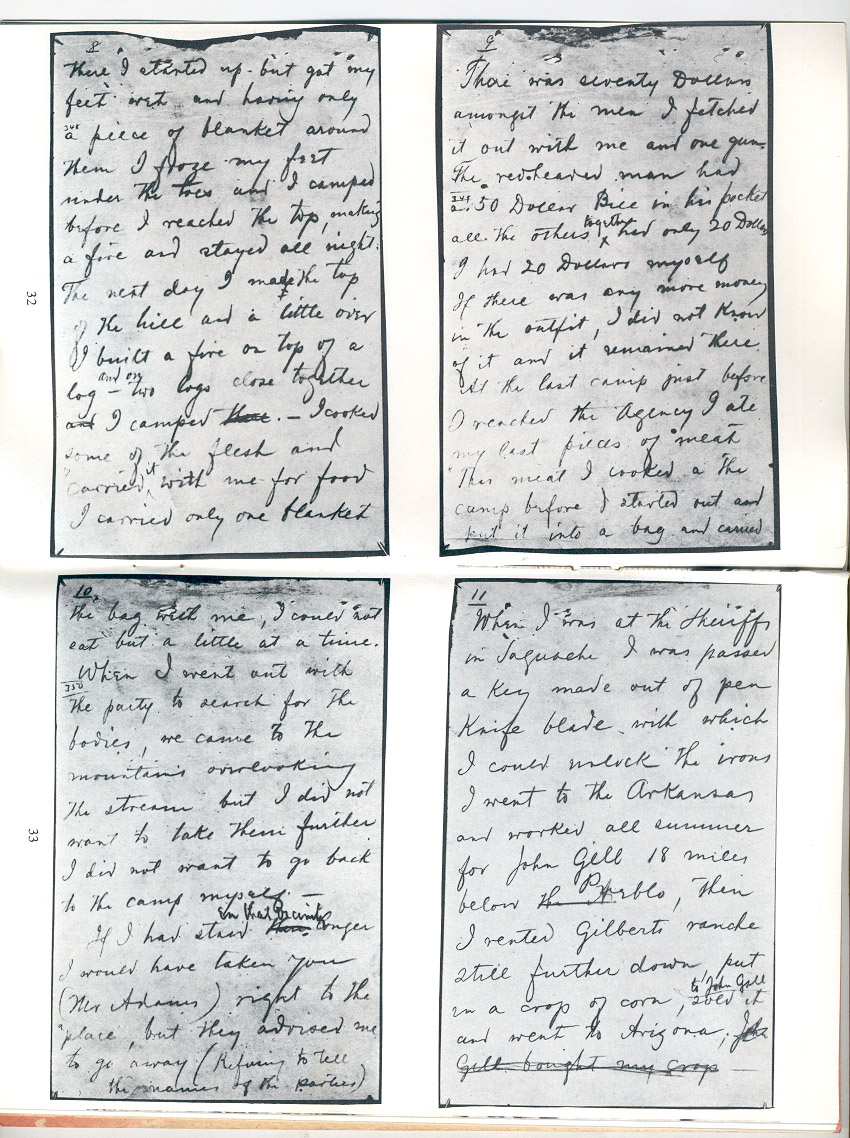 8
there I started up but got my
feet wet and having only
348
a piece of blanket around
them I froze my feet
under the toes and I camped
before I reached the top, making
a fire and stayed all night.
The next day I made the top
of the hill and a little over
I built a fire on top of a
and on
log – two logs close together
and I camped there. – I cooked
some of the flesh and
carried it with me for food
I carried only one blanket
32
9
There was seventy Dollars
amongst the men I fetched
it out with me and one gun.
The redheaded man had
349
a 50 Dollar Bill in his pocket
together
all the others had only 20 Dollars
I had 20 Dollars myself
If there was any more money
in the outfit, I did not know
of it and it remained there.
At the last camp just before
I reached the Agency I ate
my last pieces of meat
This meat I cooked a the
camp before I started out and
put it into a bag and carried
10.
the bag with me, I could not
eat but a little at a time.
When I went out with
350
the party to search for the
bodies, we came to the
mountains overlooking
the stream but I did not
want to take them further
I did not want to go back
to the camp myself. –
in that vicinity
If I had staid there longer
I would have taken you
(Mr Adams) right to the
place, but they advised me
to go away (Refusing to tell
the names of the parties)
33
11
When I was at the Sheriffs
in Saguache I was passed
a key made out of pen
Knife blade with which
I could unlock the irons
I went to the Arkansas
and worked all summer
for John Gill 18 miles
below the Pueblo, then
I rented Gilberts ranche
still further down, put
to John Gill
in a crop of corn, sold it
and went to Arizona, John
Gill bought my crop